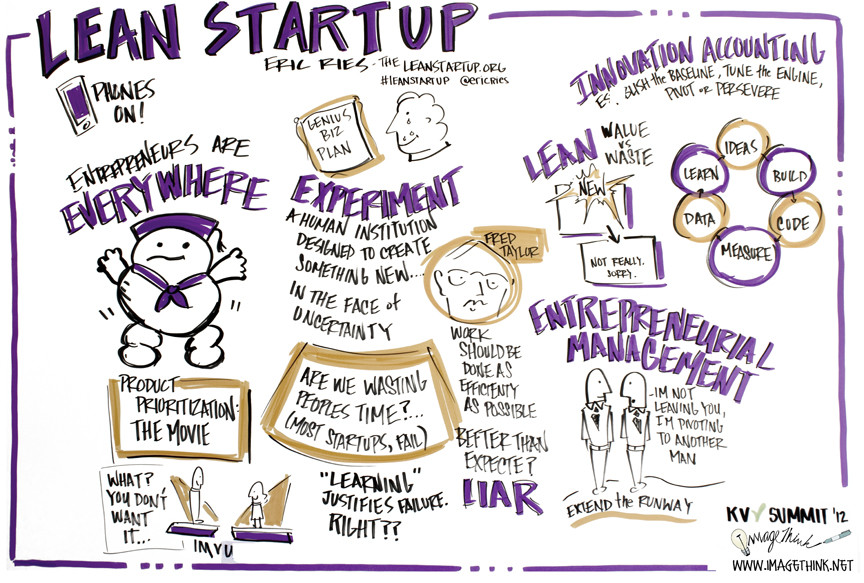 LEAN STARTUP
ERIC RIES - THE LEANSTARTUP.ORG
#LEANSTARTUP @ericries
PHONES
ON!
ENTREPRENEURS ARE
EVERYWHERE
PRODUCT
PRIORITIZATION:
THE MOVIE
WHAT?
YOU DON'T
WANT
IT...
IMVU
GENIUS
BIZ
PLAN
EXPERIMENT
A HUMAN INSTITUTION
DESIGNED TO CREATE
SOMETHING NEW...
IN THE FACE of
UNCERTAINTY
ARE WE WASTING
PEOPLES TIME?...
(MOST STARTUPS, FAIL)
"LEARNING"
JUSTIFIES FAILURE.
RIGHT??
FRED
TAYLOR
WORK
SHOULD BE
DONE AS
EFFICIENTY
AS POSSIBLE
BEFTER THAN
EXPECTE?
LIAR
LEAN
VALUE
vs
WASTE
NEW
NOT REALLY.
SORRY.
INNOVATION ACCOUNTING
GLISH the BASELINE, TUNE the ENGINE,
PIVOT or PERSEVERE
IDEAS
BUILD
CODE
MEASURE
DATA
LEARN
ENTREPRENEURIAL
MANAGEMENT
-I'M NOT
LEAVING YOU,
I'M PIVOTING
TO ANOTHER
MAN
EXTEND the RUNWAY
KV SUMMIT '12
ImageThink
WWW.IMAGETHINK.NET